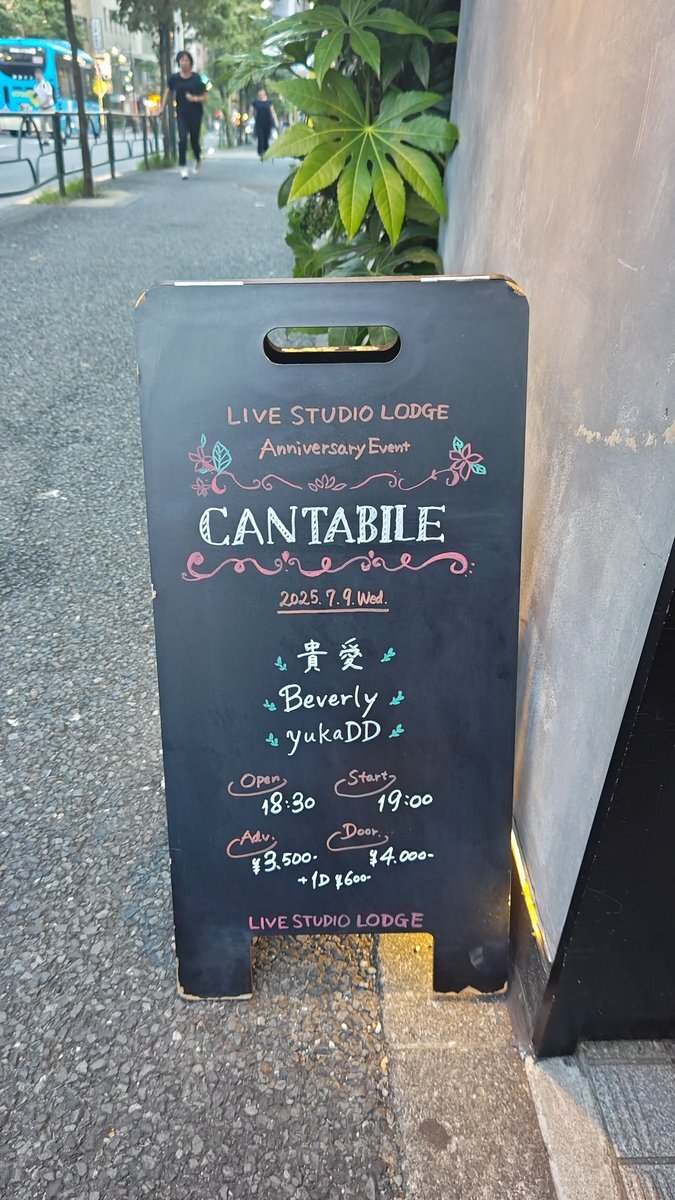 LIVE STUDIO LODGE
Anniversary Event
CANTABILE
2025.7.9.Wed.
貴愛
Beverly
yukaDD
Open Start
18:30 19:00
Adv. Door.
¥3.500- ¥4.000-
+1D ¥600-
LIVE STUDIO LODGE